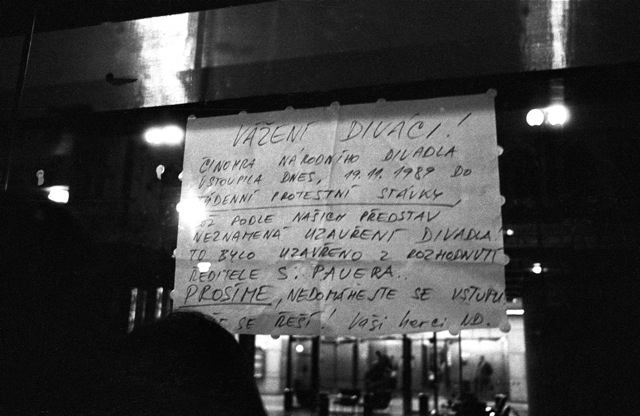 VÁŽENÍ DIVÁCI!
ČINOHRA NÁRODNÍHO DIVADLA
VSTOUPILA DNES, 19.11.1989 DO
TÝDENNÍ PROTESTNÍ STÁVKY,
COŽ PODLE NAŠICH PŘEDSTAV
NEZNAMENÁ UZAVŘENÍ DIVADLA!
TO BYLO UZAVŘENO Z ROZHODNUTÍ
ŘEDITELE S. PAUERA.
PROSÍME, NEDOMÁHEJTE SE VSTUPU,
SE ŘEŠÍ! Vaši herci ND.